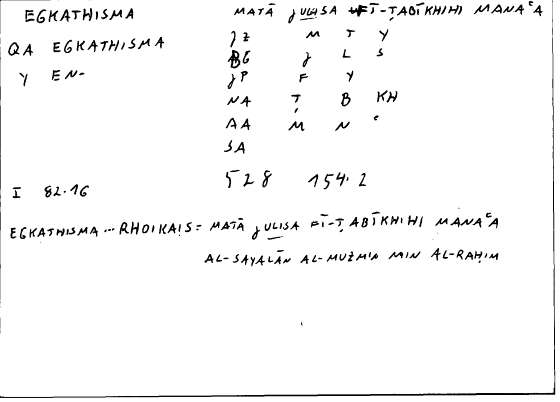 EGKATHISMA MATĀ JULISA FĪ-ṬABĪKHIHI MANAʿA
JZ M T Y
QA EGKATHISMA BG J L S
Y EN- JP F Y
NA Ṭ B KH
AA M N ʿ
SA
I 82.16 528 154.2
EGKATHISMA ... RHOIKAIS = MATĀ JULISA FĪ-ṬABĪKHIHI MANAʿA
AL-SAYALĀN AL-MUZMIN MIN AL-RAḤIM